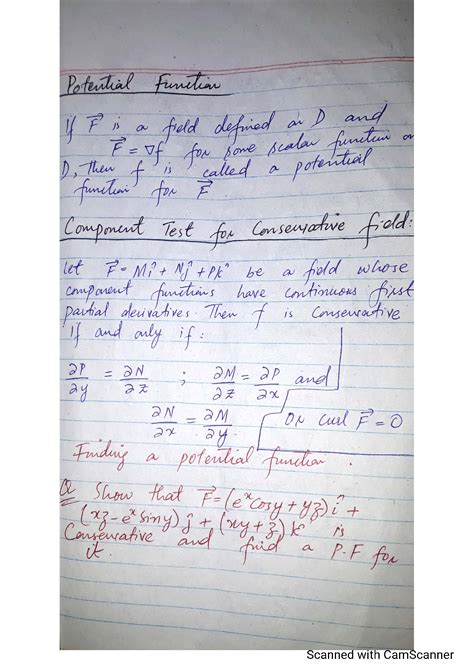 Potential Function
If F⃗ is a field defined on D and
F⃗ = ∇f for some scalar function on
D, Then f is called a potential
function for F⃗
Component Test for Conservative field:
let F⃗ = Mî + Nĵ + Pk̂ be a field whose
component functions have continuous first
partial derivatives. Then f is Conservative
If and only if:
∂P/∂y = ∂N/∂z ; ∂M/∂z = ∂P/∂x and
∂N/∂x = ∂M/∂y. OR Curl F⃗ = 0
Finding a potential function.
Q Show that F⃗ = (eˣ Cosy + yz) î +
(xz - eˣ siny) ĵ + (xy + z) k̂ is
Conservative and find a P.F for
it.
Scanned with CamScanner